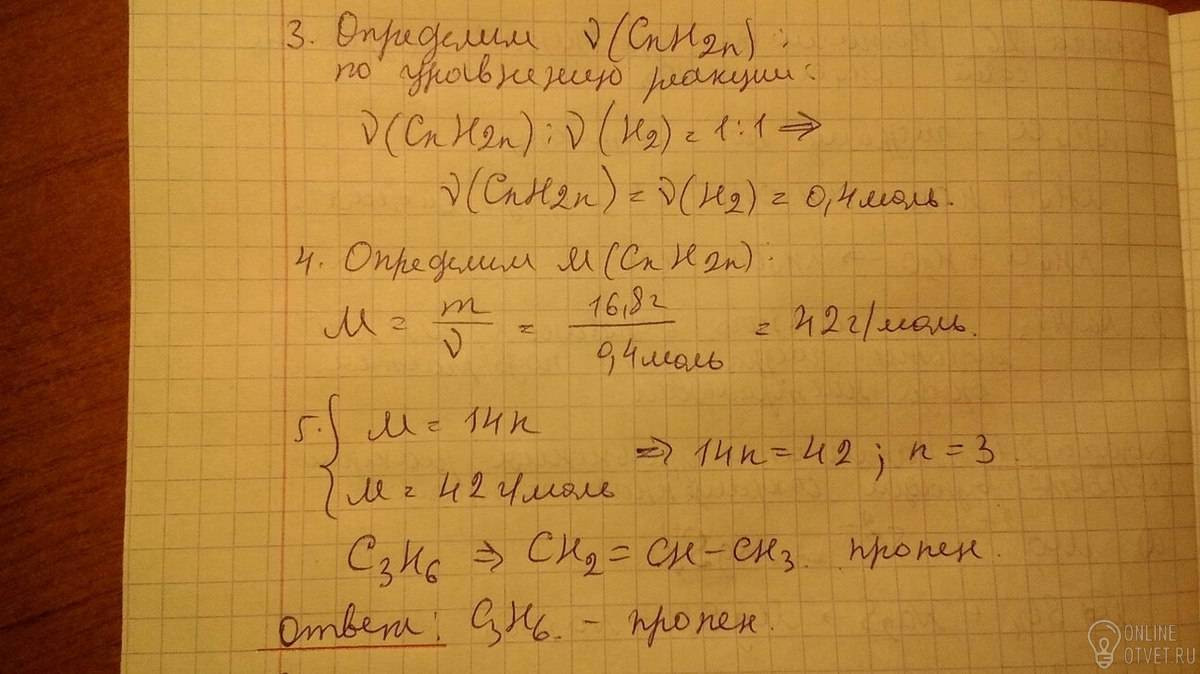 3. Определим ν(CnH2n):
по уравнению реакции:
ν(CnH2n) : ν(H2) = 1:1 ⇒
ν(CnH2n) = ν(H2) = 0,4 моль.
4. Определим M(CnH2n):
M = m/ν = 16,8г/0,4моль = 42г/моль.
5. { M = 14n
M = 42 г/моль
⇒ 14n = 42; n = 3.
C3H6 ⇒ CH2 = CH – CH3. пропен.
Ответ: C3H6. – пропен.
ONLINE
OTVET.RU